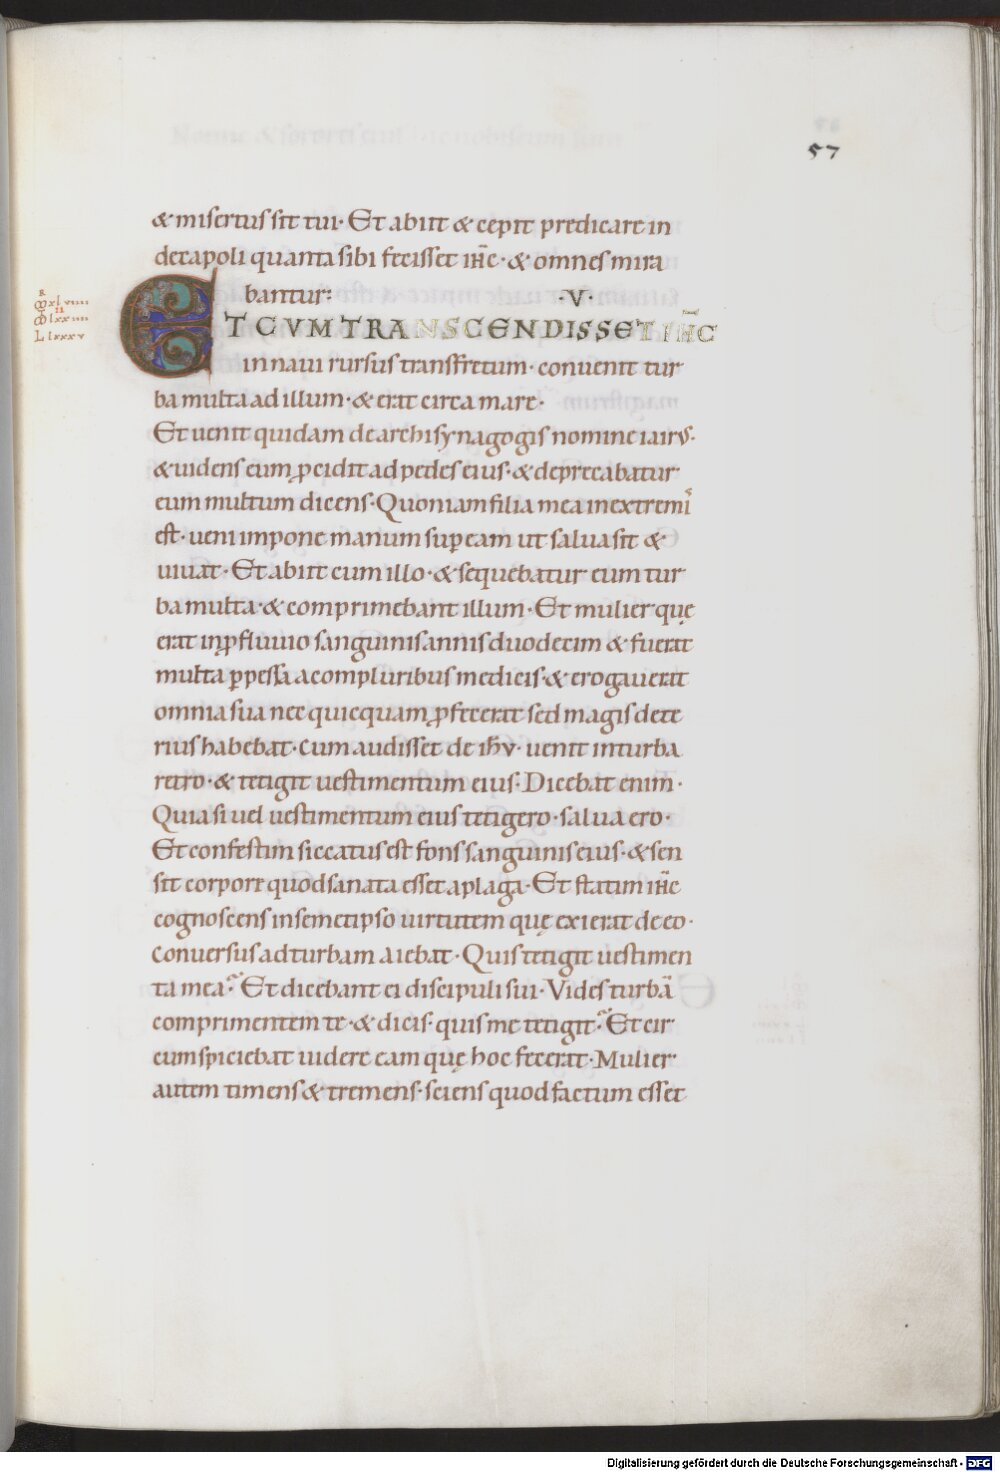 57
& misertus sit tui· Et abiit & cepit predicare in
decapoli quanta sibi fecisset ih̅c· & omnes mira
bantur:
·V·
ET CVM TRANSCENDISSET IH̅C
in naui rursus transfretum· conuenit tur
ba multa ad illum· & erat circa mare·
Et uenit quidam de archisynagogis nomine iairus·
& uidens eum ꝓcidit ad pedes eius· & deprecabatur
eum multum dicens· Quoniam filia mea in extremis
est· ueni impone manum suꝑ eam ut salua sit &
uiuat· Et abiit cum illo· & sequebatur eum tur
ba multa· & comprimebant illum· Et mulier quę
erat in ꝓfluuio sanguinis annis duodecim & fuerat
multa ꝑpessa a compluribus medicis· & erogauerat
omnia sua nec quicquam ꝓfecerat sed magis dete
rius habebat· Cum audisset de ih̅u· uenit in turba
retro· & tetigit uestimentum eius· Dicebat enim·
Quia si uel uestimentum eius tetigero· salua ero·
Et confestim siccatus est fons sanguinis eius· & sen
sit corpore quod sanata esset a plaga· Et statim ih̅c
cognoscens in semetipso uirtutem quę exierat de eo·
Conuersus ad turbam aiebat· Quis tetigit uestimen
ta mea? Et dicebant ei discipuli sui· Vides turbā
comprimentem te· & dicis· quis me tetigit? Et cir
cumspiciebat uidere eam quę hoc fecerat· Mulier
autem timens & tremens· sciens quod factum esset
Digitalisierung gefördert durch die Deutsche Forschungsgemeinschaft - DFG